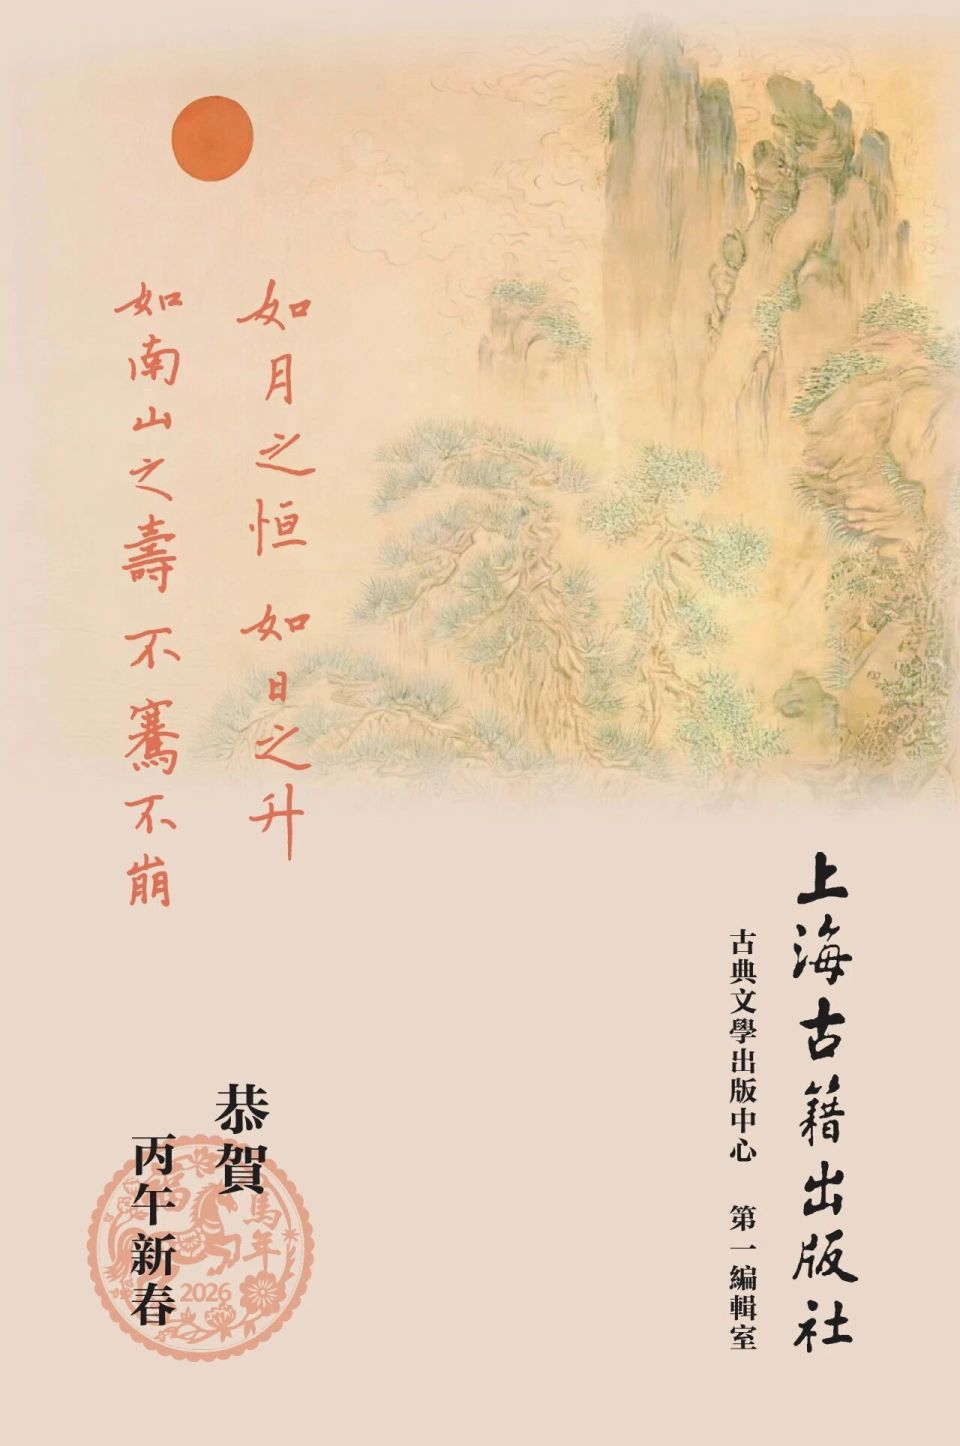 如月之恒 如日之升
如南山之壽 不騫不崩
上海古籍出版社
古典文學出版中心 第一編輯室
恭賀
丙午新春
福
馬年
2026